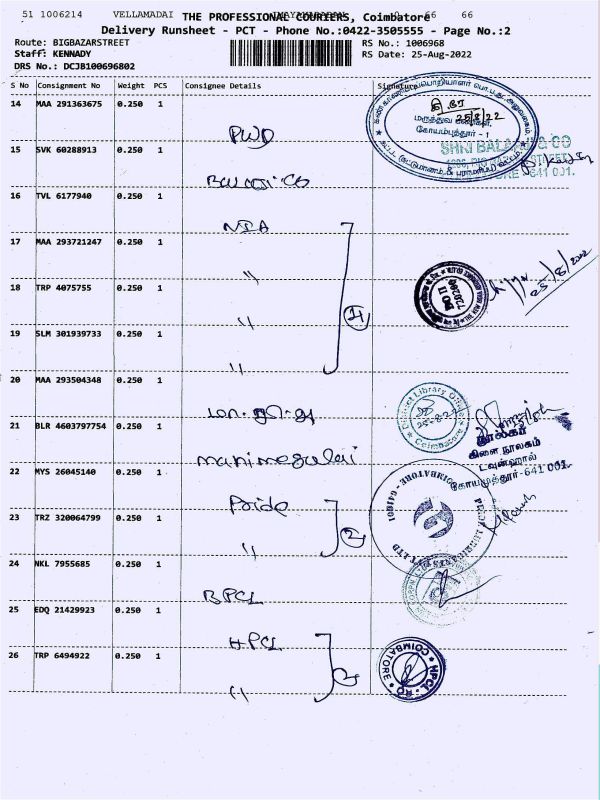 51 1006214 VELLAMADAI 66 66
THE PROFESSIONAL COURIERS, Coimbatore
Delivery Runsheet - PCT - Phone No.:0422-3505555 - Page No.:2
Route: BIGBAZARSTREET RS No.: 1006968
Staff: KENNADY RS Date: 25-Aug-2022
DRS No.: DCJB100696802
S No Consignment No Weight PCS Consignee Details Signature
14 MAA 291363675 0.250 1 PWD
மருத்துவ
25/8/22
கோயம்புத்தூர் - 1
15 SVK 60288913 0.250 1
SHRI BALAJI & CO
641 001.
16 TVL 6177940 0.250 1 NIA
17 MAA 293721247 0.250 1 "
25/8/2022
18 TRP 4075755 0.250 1 "
19 SLM 301939733 0.250 1 "
4
20 MAA 293504348 0.250 1
District Library Office
25-8-22
Coimbatore
21 BLR 4603797754 0.250 1 manimegalai
நூலகர்
கிளை நூலகம்
டவுன்ஹால்
கோயமுத்தூர்-641 001.
22 MYS 26045140 0.250 1 Pride
COIMBATORE - 641001
23 TRZ 320064799 0.250 1 "
2
24 NKL 7955685 0.250 1 BPCL
25 EDQ 21429923 0.250 1 HPCL
26 TRP 6494922 0.250 1 "
2
HPCL - RO
COIMBATORE